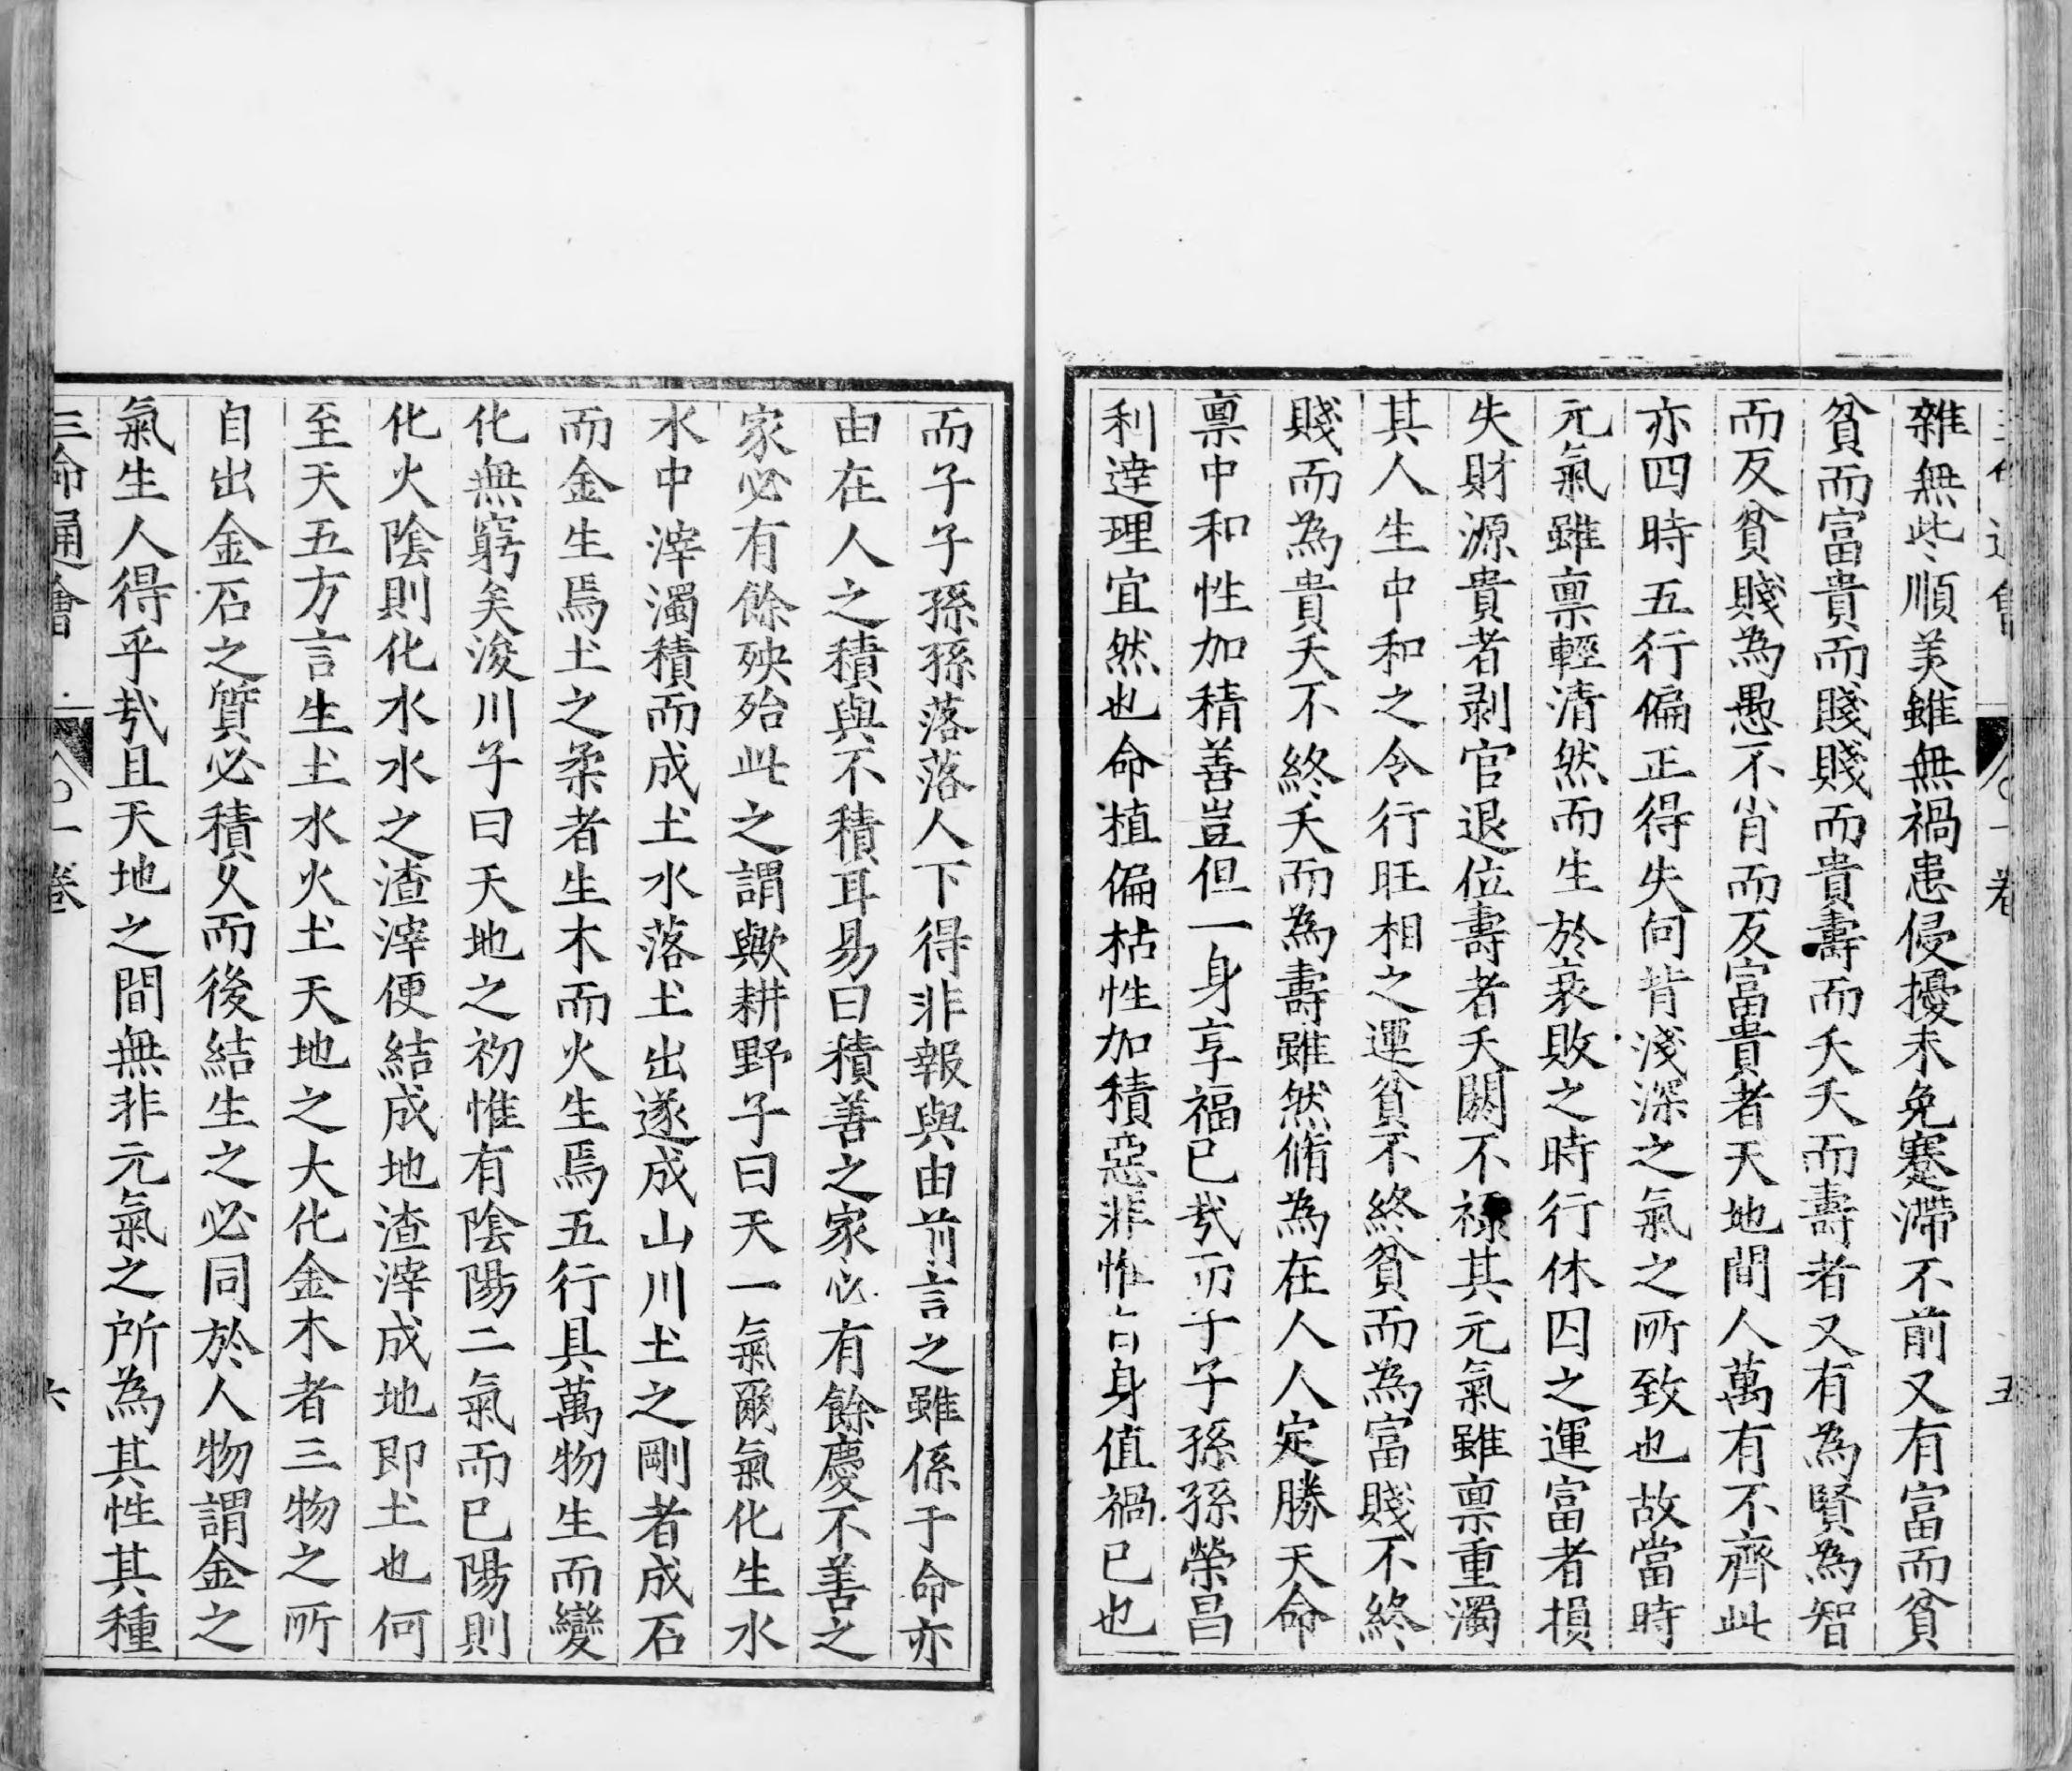 雜無此順美雖無禍患侵擾未免蹇滯不前又有富而貧
貧而富貴而賤賤而貴壽而夭夭而壽者又有為賢為智
而反貧賤為愚不肖而反富貴者天地間人萬有不齊此
亦四時五行偏正得失向背淺深之氣之所致也故當時
元氣雖稟輕清然而生於衰敗之時行休囚之運富者損
失財源貴者剥官退位壽者夭闕不祿其元氣雖稟重濁
其人生中和之令行旺相之運貧不終貧而為富賤不終
賤而為貴夭不終夭而為壽雖然脩為在人人定勝天命
稟中和性加積善豈但一身享福已㦲而子子孫孫榮昌
利達理宜然也命植偏枯性加積惡非惟自身值禍已也
五
而子子孫孫落落人下得非報與由前言之雖係于命亦
由在人之積與不積耳易曰積善之家必有餘慶不善之
家必有餘殃殆此之謂歟耕野子曰天一氣爾氣化生水
水中滓濁積而成土水落土出遂成山川土之剛者成石
而金生焉土之柔者生木而火生焉五行具萬物生而變
化無窮矣浚川子曰天地之初惟有陰陽二氣而已陽則
化火陰則化水水之渣滓便結成地渣滓成地即土也何
至天五方言生土水火土天地之大化金木者三物之所
自出金石之質必積久而後結生之必同於人物謂金之
氣生人得乎㦲且天地之間無非元氣之所為其性其種
三命通會 一卷 六